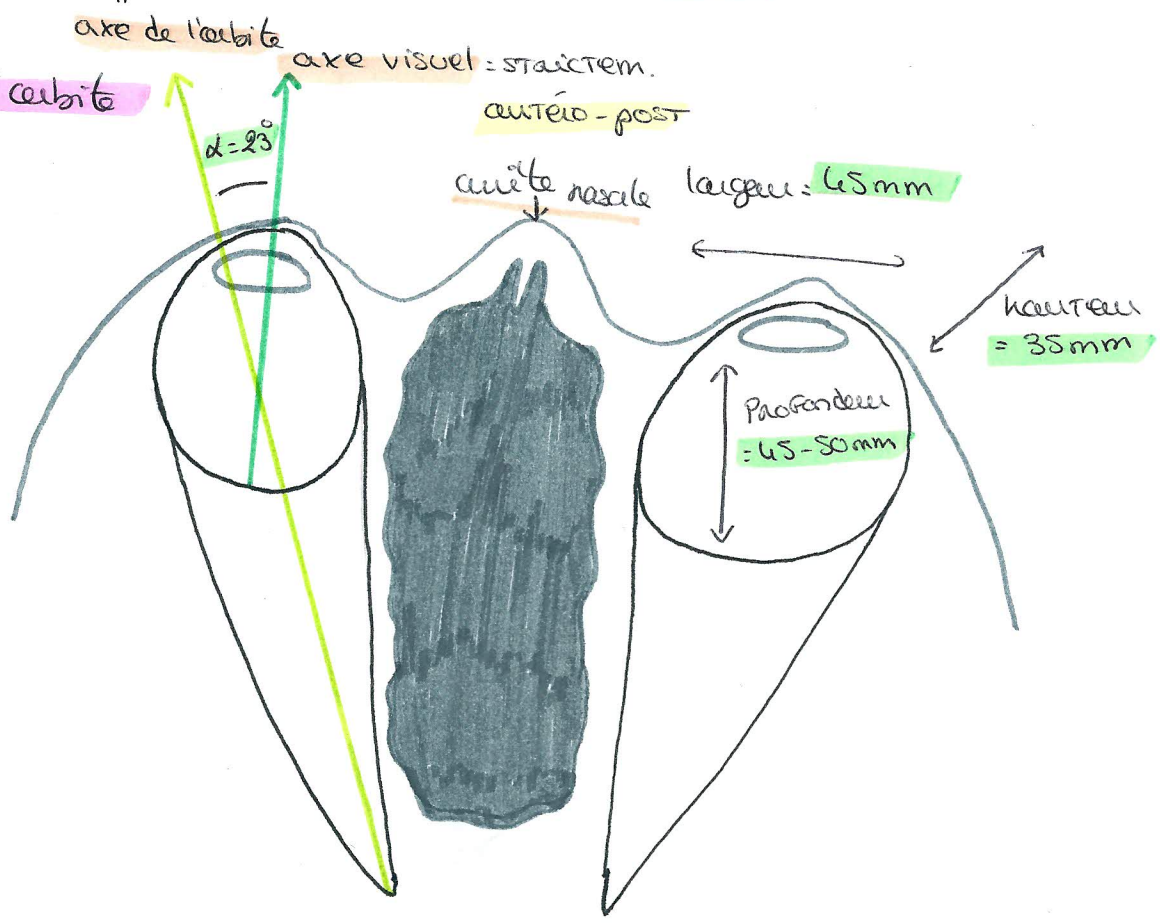 axe de l'orbite
axe visuel = strictem.
antéro-post
orbite
α = 23°
arrête nasale
largeur = 45mm
hauteur
= 35mm
Profondeur
= 45-50mm